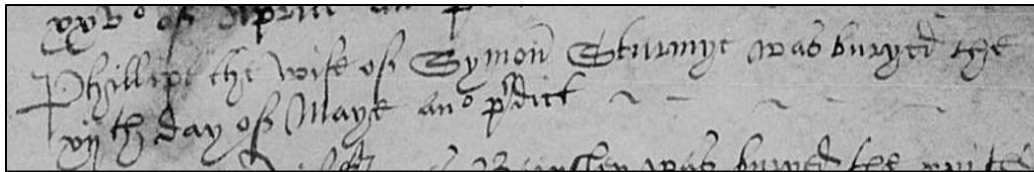 xxvº of Aprill an
Phillipe the wife of Symon Sturmye was buryed the
vijth day of Maye anº pʳdict ~ ~ ~ ~
was buryed the